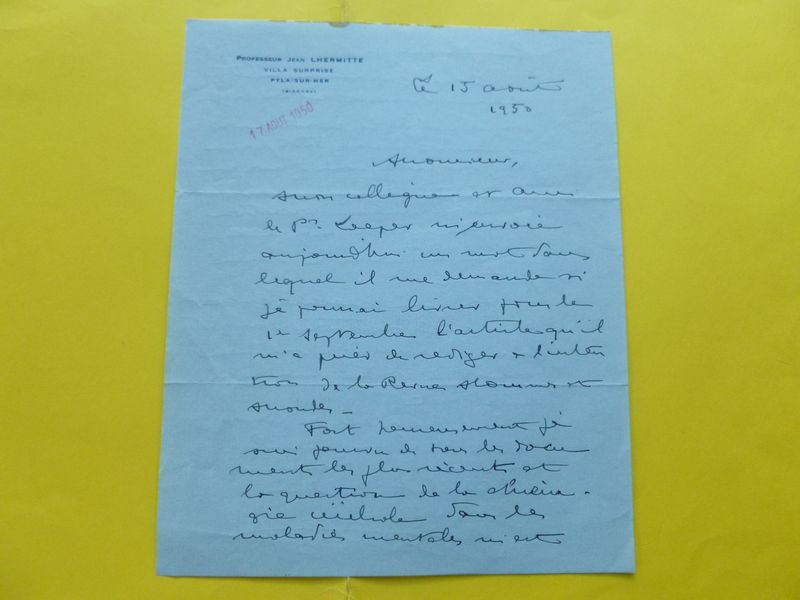 PROFESSEUR JEAN LHERMITTE
VILLA SURPRISE
PYLA-SUR-MER
(GIRONDE)
17 AOUT 1950
Le 15 août
1950
Monsieur,
mon collègue et ami
le Pr m'envoie
aujourd'hui un mot dans
lequel il me demande si
je pourrai livrer pour le
1er septembre l'article qu'il
m'a prié de rediger a l'inten
tion de la Revue Hommes et
Mondes –
Fort heureusement je
suis pourvu de tous les docu
ments les plus récents et
la question de la chirur-
gie cérébrale dans les
maladies mentales m'est